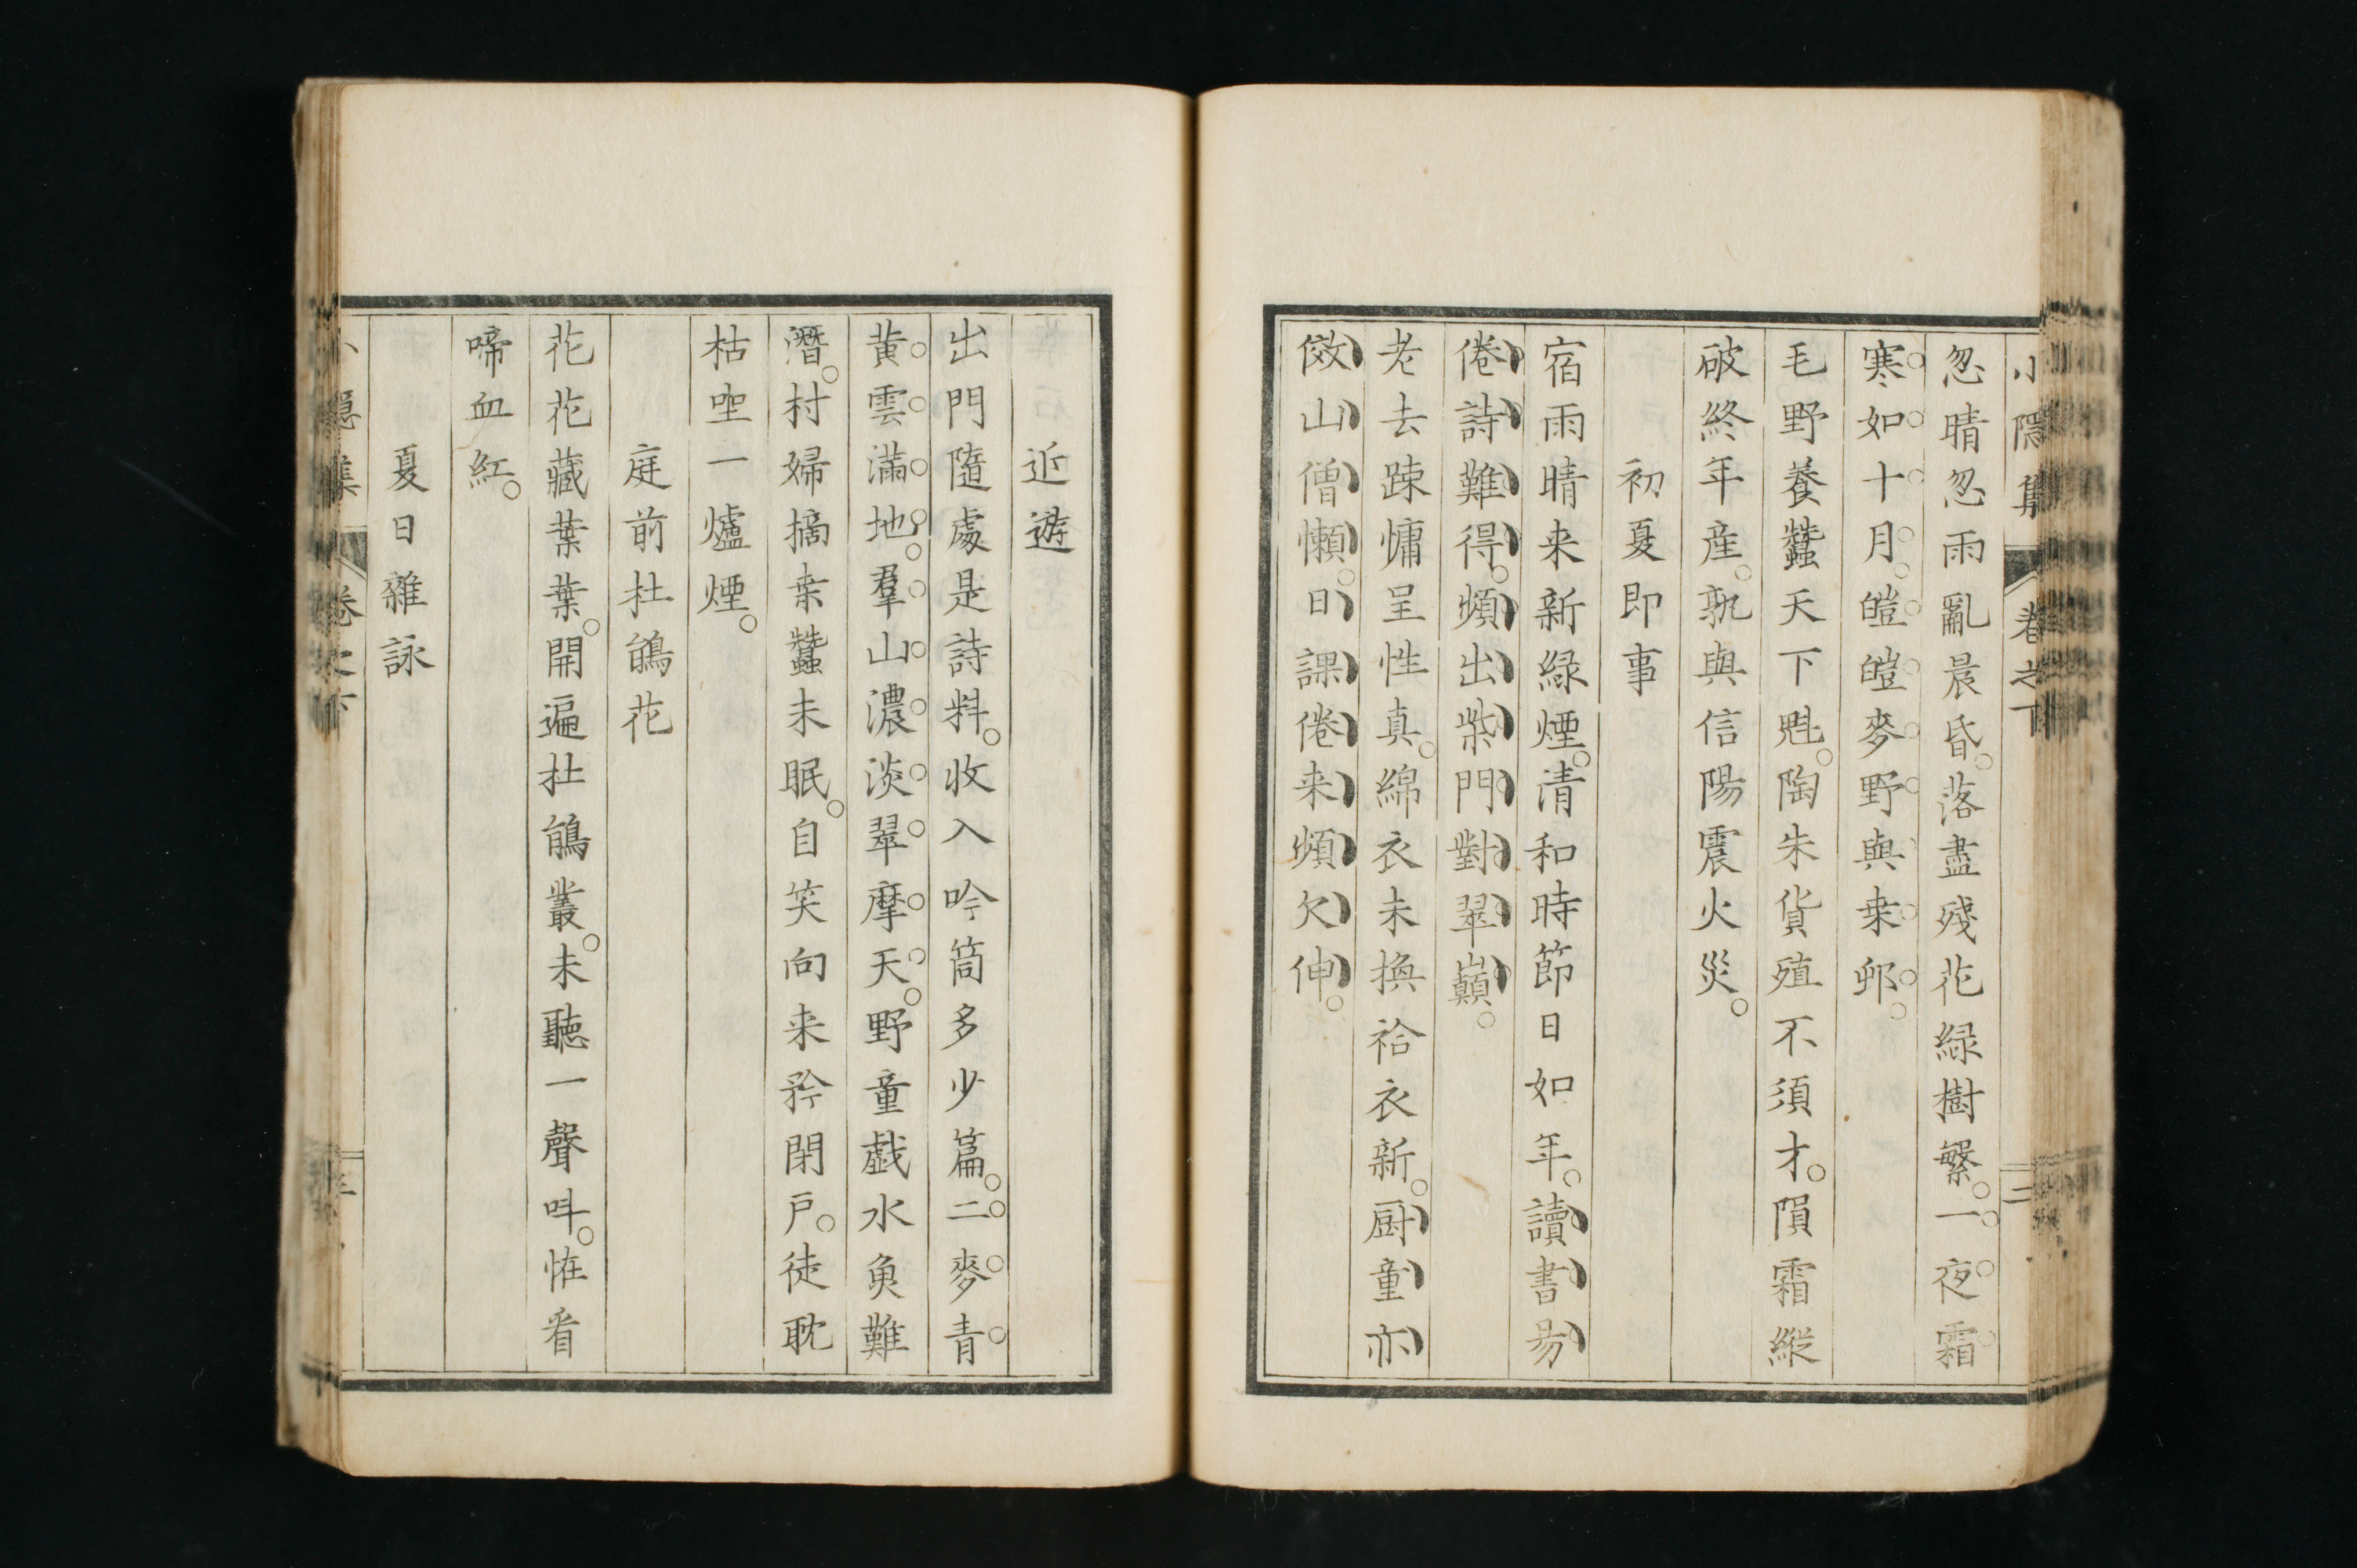 小隱集 卷之下 二
忽晴忽雨亂晨昏。落盡殘花緑樹繁。一夜霜
寒如十月。皚皚麥野與桒邨。
毛野養蠶天下魁。陶朱貨殖不須才。隕霜縱
破終年産。孰與信陽震火災。
初夏即事
宿雨晴来新緑煙。清和時節日如年。讀書易
倦詩難得。頻出柴門對翠巓。
老去踈慵呈性真。綿衣未換袷衣新。厨童亦
傚山僧懶。日課倦来頻欠伸。
近遊
出門隨處是詩料。收入吟筒多少篇。二麥青
黄雲滿地。羣山濃淡翠摩天。野童戱水魚難
潛。村婦摘桒蠶未眠。自笑向来矜閉戸。徒耽
枯坐一爐煙。
庭前杜鵑花
花花藏葉葉。開遍杜鵑叢。未聽一聲呌。恠看
啼血紅。
夏日雜詠
小隱集 卷之下